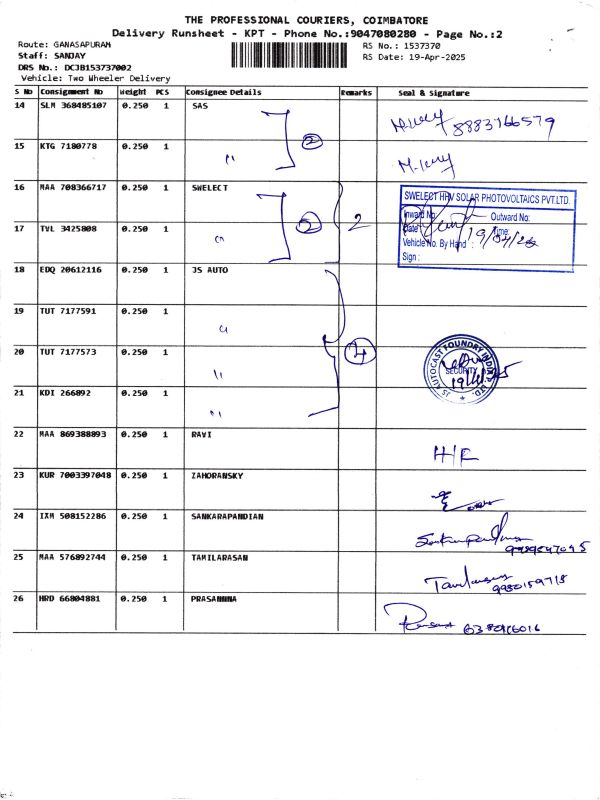 THE PROFESSIONAL COURIERS, COIMBATORE
Delivery Runsheet - KPT - Phone No.:9047080280 - Page No.:2
Route: GANASAPURAM
RS No.: 1537370
Staff: SANJAY
RS Date: 19-Apr-2025
DRS No.: DCJB153737002
Vehicle: Two Wheeler Delivery
S No Consignment No Weight PCS Consignee Details Remarks Seal & Signature
14 SLM 368485107 0.250 1 SAS
2 8883766579
15 KTG 7180778 0.250 1 "
16 MAA 708366717 0.250 1 SWELECT
SWELECT HHV SOLAR PHOTOVOLTAICS PVT.LTD.
Inward No Outward No:
2 2
17 TVL 3425808 0.250 1 "
Date Time:
Vehicle No. By Hand :
Sign :
18 EDQ 20612116 0.250 1 JS AUTO
19 TUT 7177591 0.250 1 "
20 TUT 7177573 0.250 1 "
4
JS AUTOCAST FOUNDRY INDIA LTD.
SECURITY
21 KDI 266892 0.250 1 "
22 MAA 869388893 0.250 1 RAVI
H/F
23 KUR 7003397048 0.250 1 ZAHORANSKY
24 IXM 508152286 0.250 1 SANKARAPANDIAN
25 MAA 576892744 0.250 1 TAMILARASAN
26 HRD 66804881 0.250 1 PRASANNNA